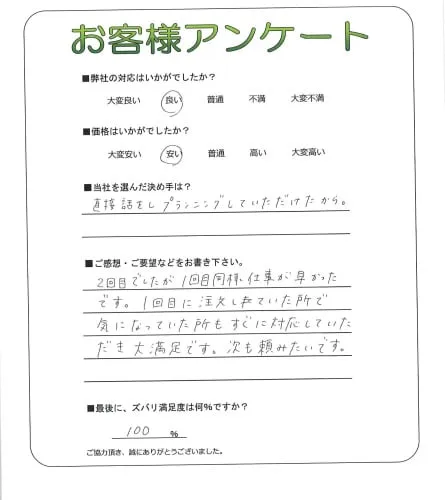 お客様アンケート
■弊社の対応はいかがでしたか？
大変良い 良い 普通 不満 大変不満
■価格はいかがでしたか？
大変安い 安い 普通 高い 大変高い
■当社を選んだ決め手は？
直接話をしプランニングしていただけたから。
■ご感想・ご要望などをお書き下さい。
2回目でしたが1回目同様、仕事が早かった
です。1回目に注文し来ていた所で
気になっていた所もすぐに対応していた
だき大満足です。次も頼みたいです。
■最後に、ズバリ満足度は何％ですか？
100 ％
ご協力頂き、誠にありがとうございました。